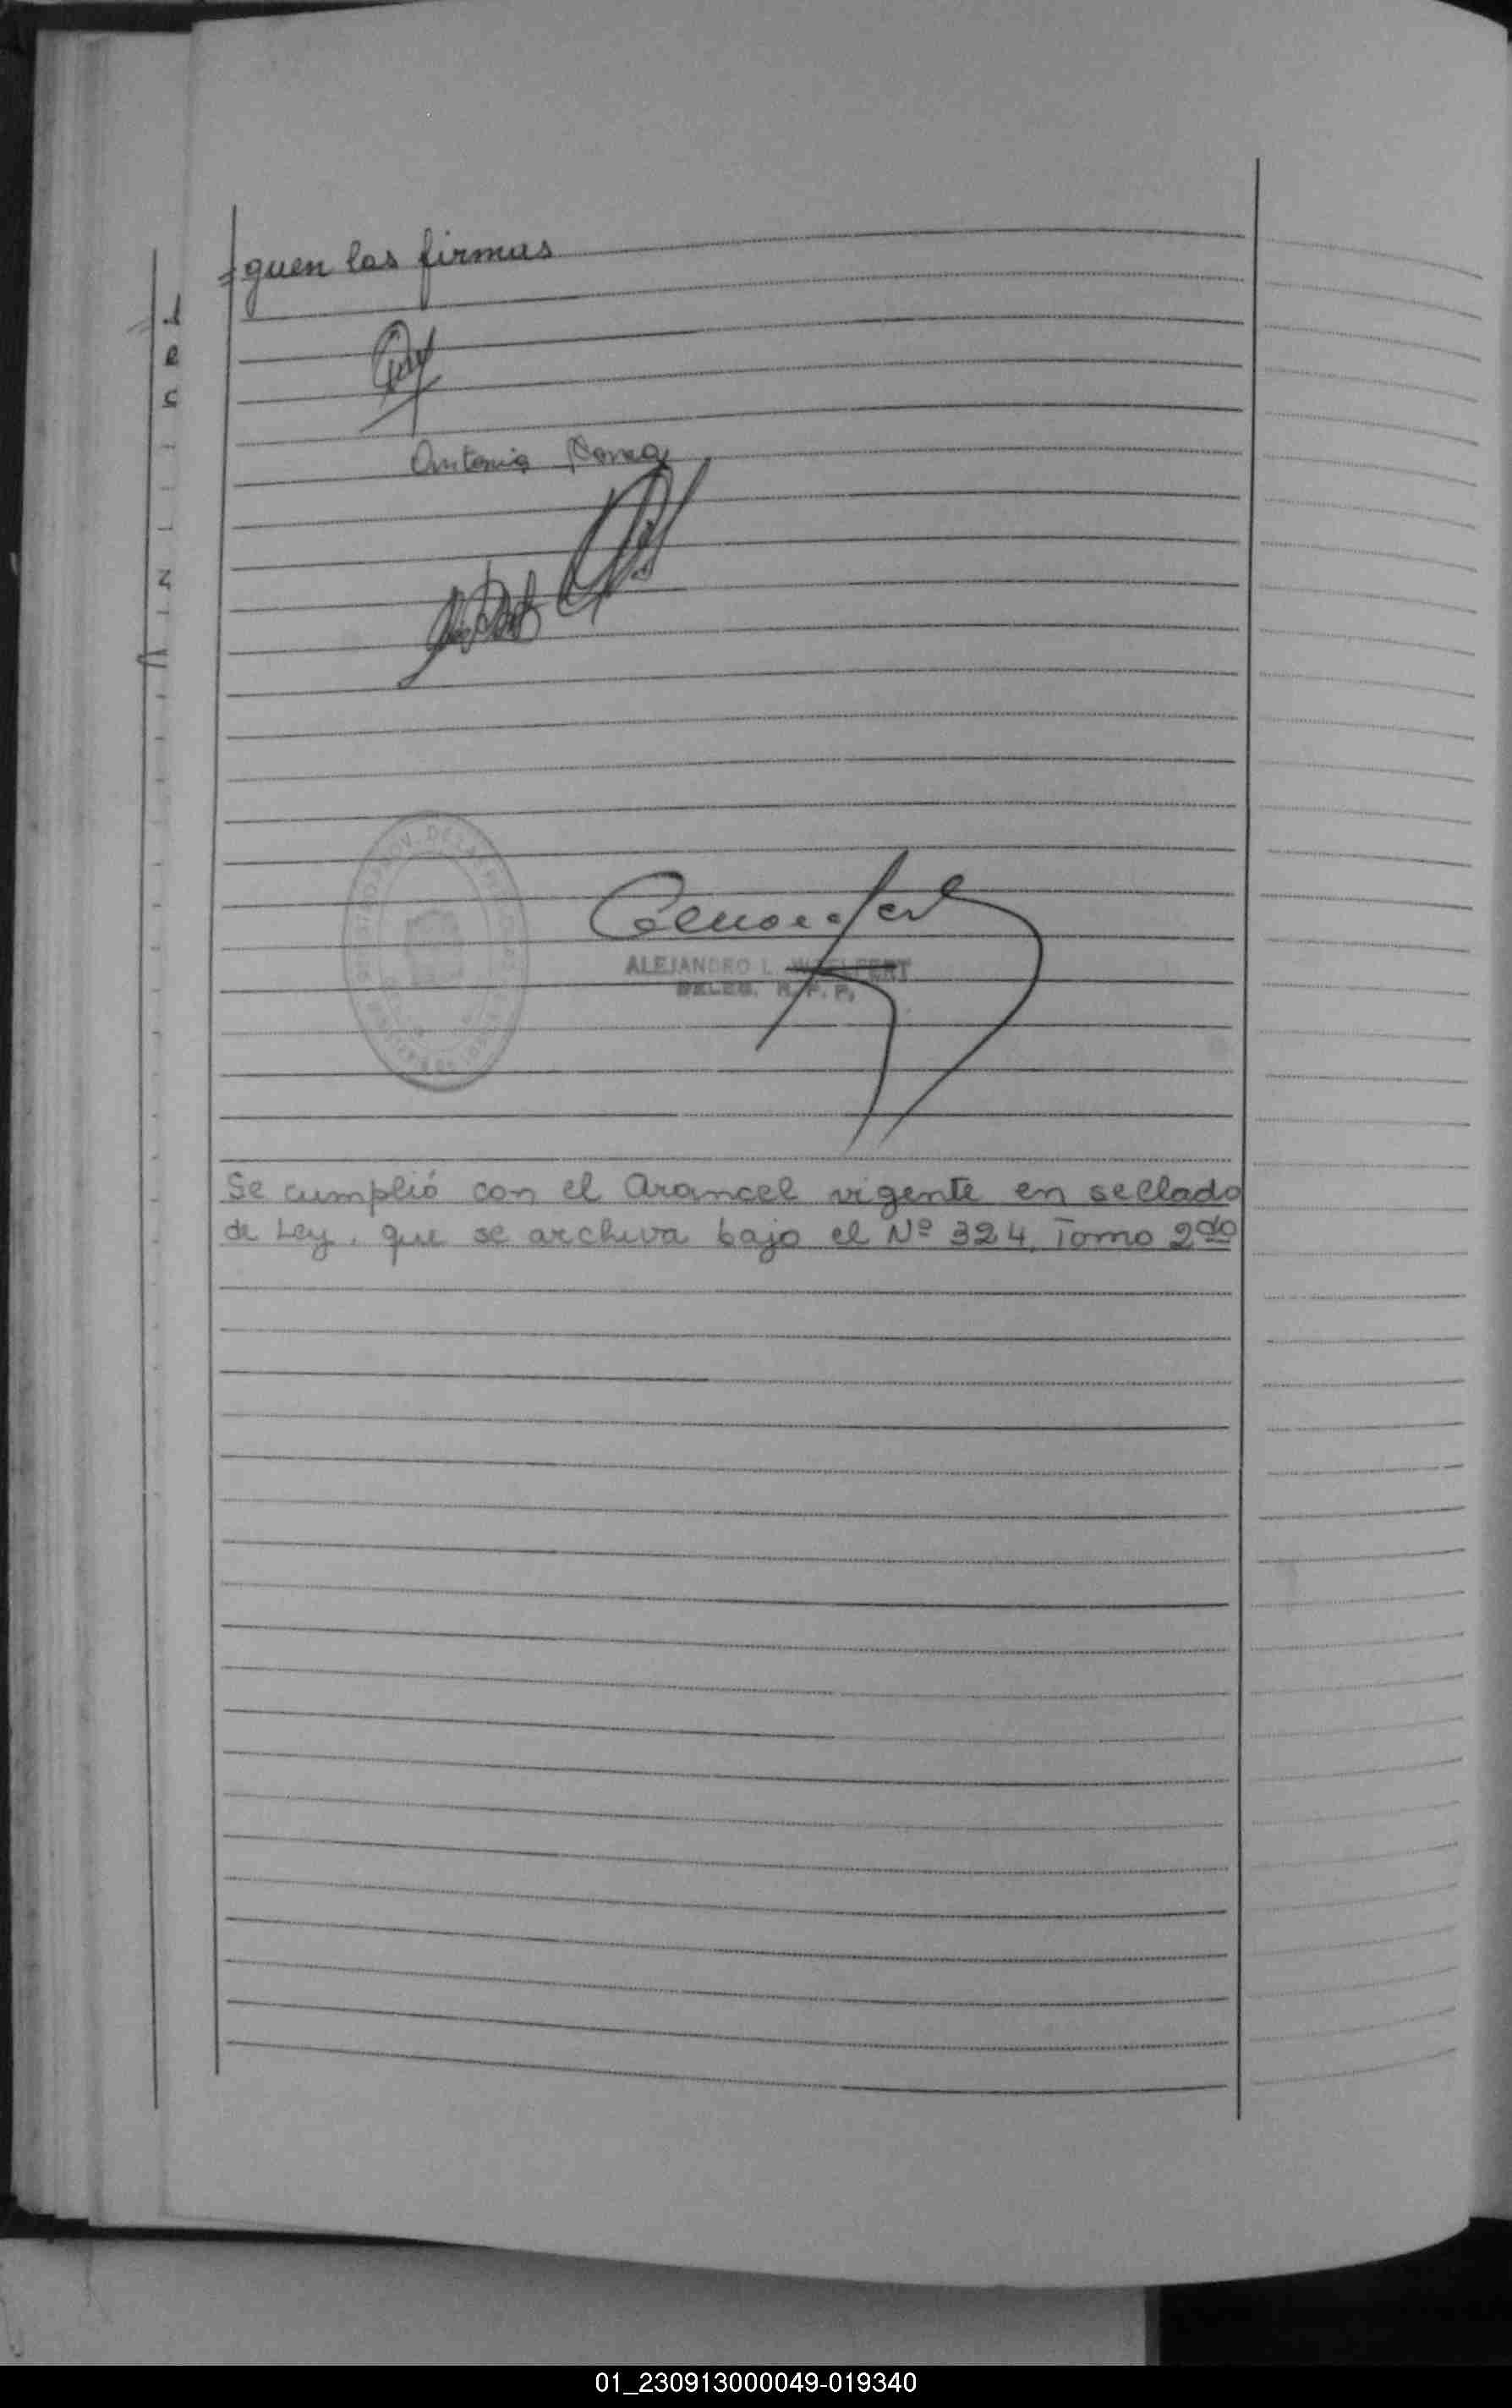 =guen las firmas
Antonia
ALEJANDRO L. WOELFERT
DELEG. R. P. P.
Se cumplió con el Arancel vigente en sellado
de Ley, que se archiva bajo el Nº 324, Tomo 2do
01_230913000049-019340